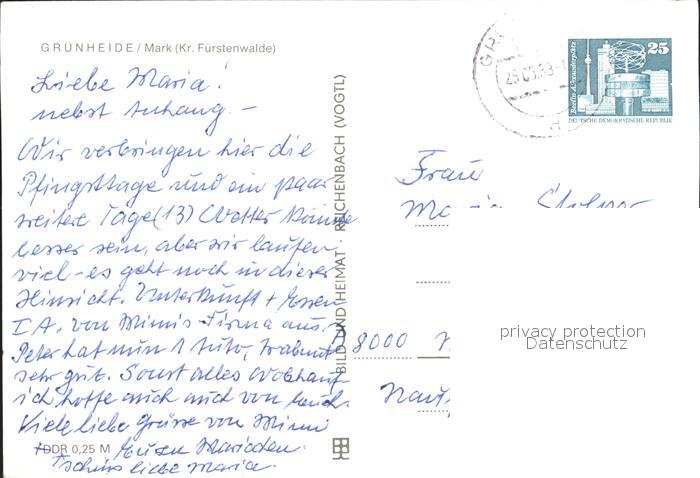 GRÜNHEIDE / Mark (Kr. Fürstenwalde)
Liebe Maria!
nebst Anhang. -
Wir verbringen hier die
Pfingsttage und ein paar
weitere Tage (13) Wetter könnte
besser sein, aber wir laufen
viel - es geht noch in dieser
Hinsicht. Unterkunft + Essen
I A. von Mimis-Firma aus.
Peter hat nun 1 Auto, Trabant
sehr gut. Sonst alles wohlauf
ich hoffe auch auch von Euch.
Viele liebe Grüsse von Mimi
+ Euren
Tschüss liebe Maria.
DDR 0,25 M
BILD UND HEIMAT · REICHENBACH (VOGTL)
25
Berlin, Alexanderplatz
DEUTSCHE DEMOKRATISCHE REPUBLIK
Frau
8000
privacy protection
Datenschutz